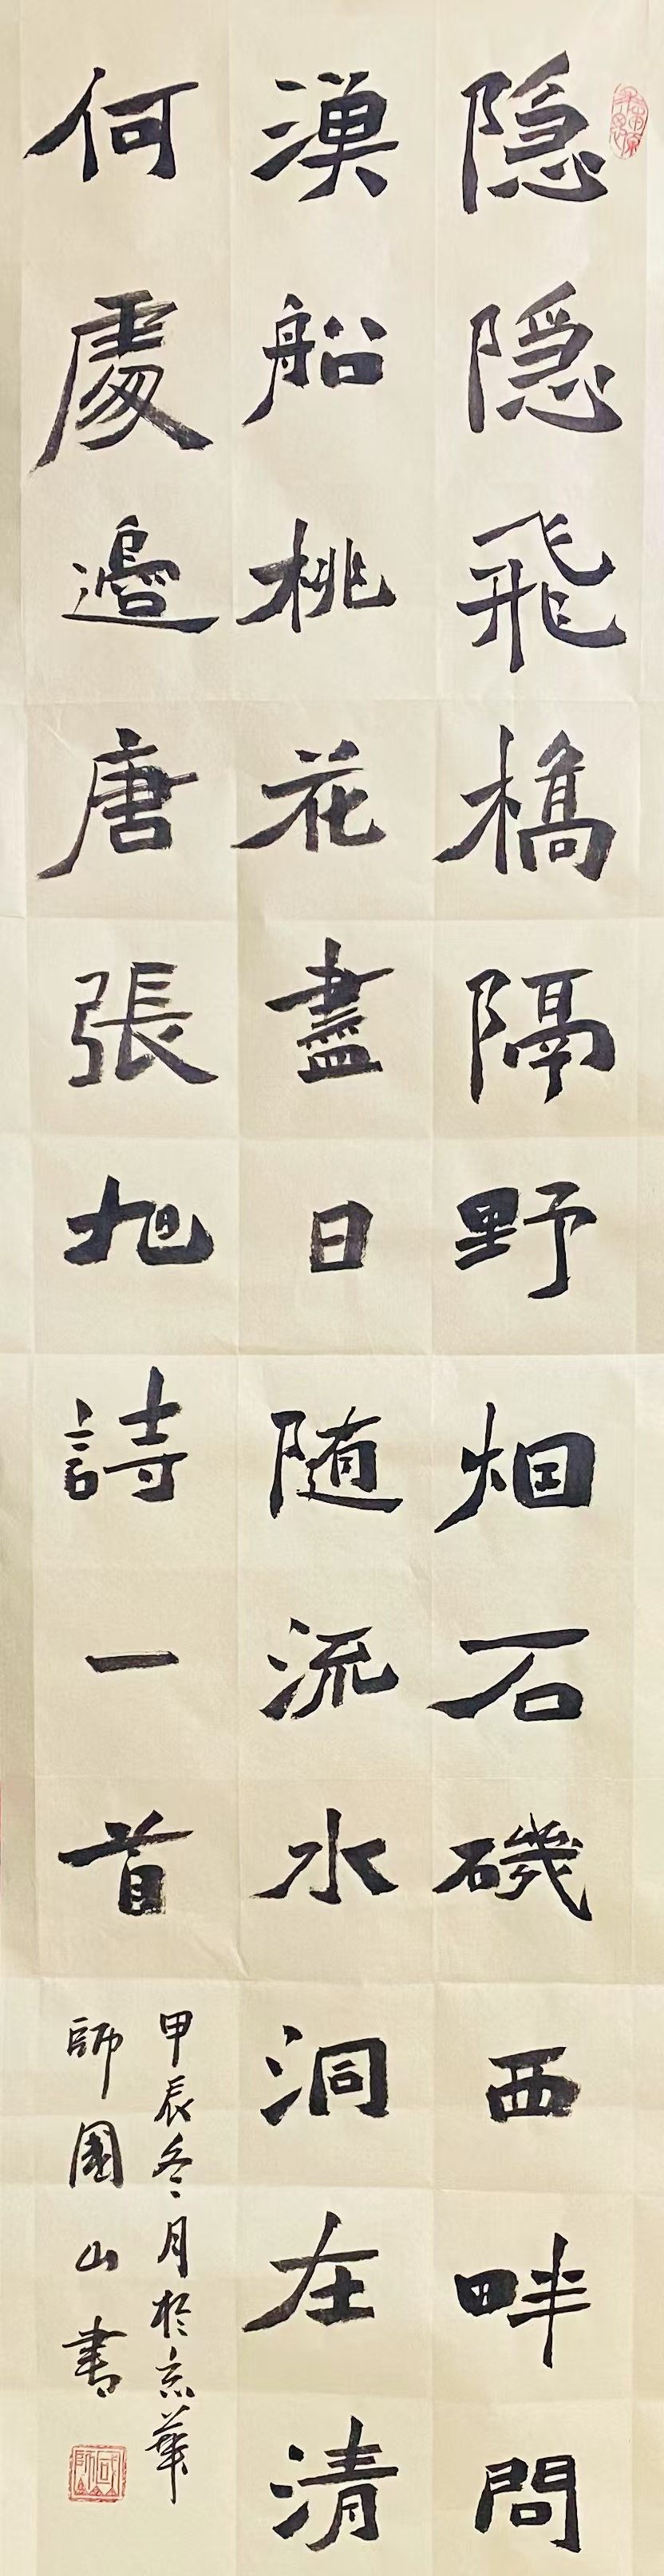 隐隐飛橋隔野烟石磯西畔問
漁船桃花盡日随流水洞在清
何處邉唐張旭詩一首
甲辰冬月於京華
師國山書